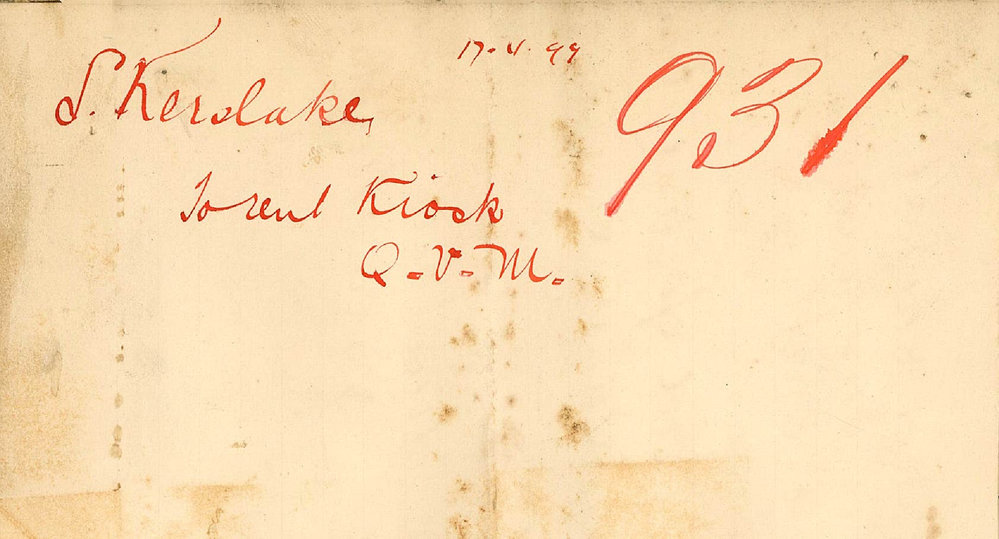 17.V.99
931
S. Kerslake,
To rent Kiosk
Q.V.M.